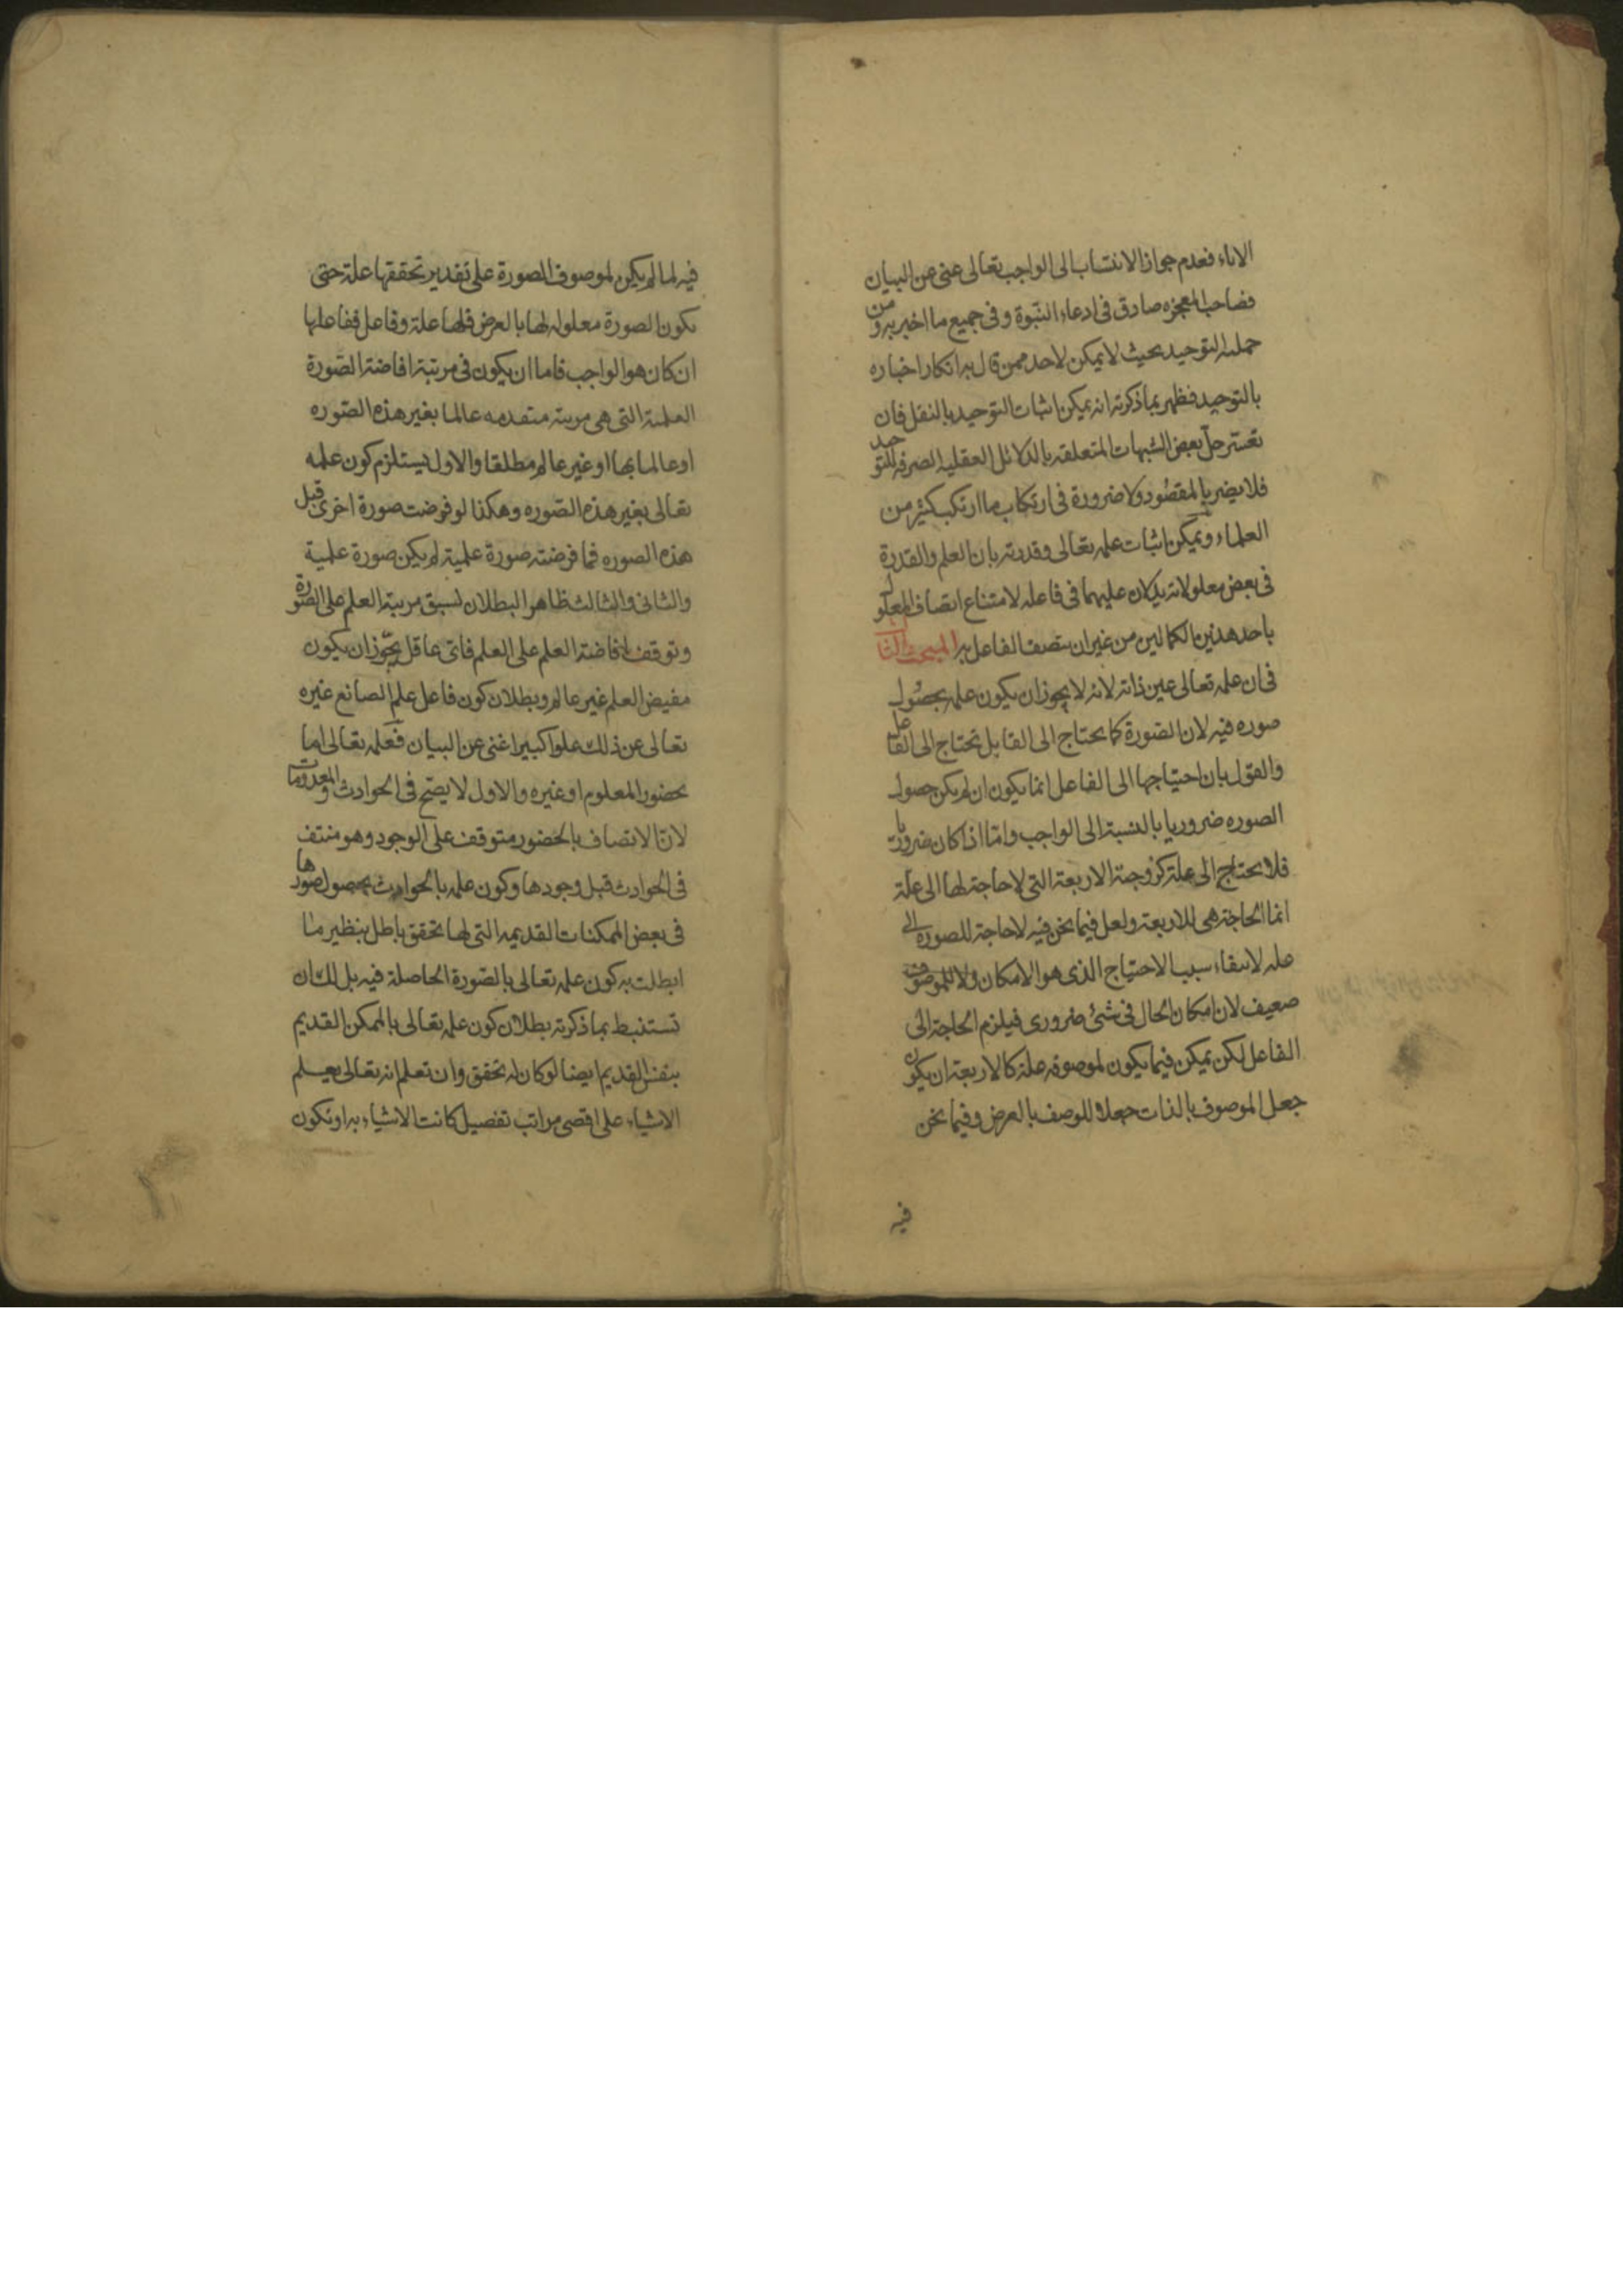 الاباء فعدم جواز الانتساب الى الواجب تعالى غنى عن البيان
فصاحب المعجزه صادق فى ادعاء النبوة و فى جميع ما اخبر به ومن
جملته التوحيد بحيث لا يمكن لاحد ممن قال به انكار اخباره
بالتوحيد فظهر بما ذكرته انه يمكن اثبات التوحيد بالنقل فان
تعسر حل بعض الشبهات المتعلقه بالدلائل العقليه الصرفه للتوحيد
فلا يضر بالمقصود ولا ضرورة فى ارتكاب ما ارتكب كثير من
العلماء ويمكن اثبات علمه تعالى وقدرته بان العلم والقدرة
فى بعض معلولاته يدلان عليهما فى فاعله لامتناع اتصاف المعلول
باحد هذين الكمالين من غير ان يتصف الفاعل به المبحث الثانى
فى ان علمه تعالى عين ذاته لانه لا يجوز ان يكون علمه بحصول
صوره فيه لان الصورة كما يحتاج الى القابل تحتاج الى الفاعل
والقول بان احتياجها الى الفاعل انما يكون ان لم يكن حصول
الصوره ضروريا بالنسبة الى الواجب واما اذا كان ضروريا
فلا يحتاج الى علة كزوجية الاربعة التى لا حاجة لها الى علة
انما الحاجة هى للاربعة ولعل فيما نحن فيه لا حاجة للصورة الى
عله لانتفاء سبب الاحتياج الذى هو الامكان ولا للموصوف
ضعيف لان امكان الحال فى شئ ضرورى فيلزم الحاجة الى
الفاعل لكن يمكن فيما يكون لموصوفه علة كالاربعة ان يكون
جعل الموصوف بالذات جعلا للوصف بالعرض وفيما نحن
فيه
فيه لما لم يكن لموصوف الصورة على تقدير تحققها علة حتى
يكون الصورة معلوله لها بالعرض فلها علة وفاعل ففاعلها
ان كان هو الواجب فاما ان يكون فى مرتبة افاضة الصورة
العلمية التى هى مرتبة متقدمه عالما بغير هذه الصوره
او عالما بها او غير عالم مطلقا والاول يستلزم كون علمه
تعالى بغير هذه الصوره وهكذا لو فرضت صورة اخرى قبل
هذه الصوره فما فرضته صورة علمية لم يكن صورة علمية
والثانى والثالث ظاهر البطلان لسبق مرتبة العلم على الصورة
وتوقف افاضة العلم على العلم فاى عاقل يجوز ان يكون
مفيض العلم غير عالم وبطلان كون فاعل علم الصانع غيره
تعالى عن ذلك علوا كبيرا غنى عن البيان فعلمه تعالى اما
بحضور المعلوم او غيره والاول لا يصح فى الحوادث والمعدومات
لان الاتصاف بالحضور متوقف على الوجود وهو منتف
فى الحوادث قبل وجودها وكون علمه بالحوادث بحصول صورها
فى بعض الممكنات القديمه التى لها تحقق باطل بنظير ما
ابطلت به كون علمه تعالى بالصورة الحاصلة فيه بل لك ان
تستنبط بما ذكرته بطلان كون علمه تعالى بالممكن القديم
بنفس القديم ايضا لو كان له تحقق وان تعلم انه تعالى يعلم
الاشياء على اقصى مراتب تفصيل كانت الاشياء به او تكون